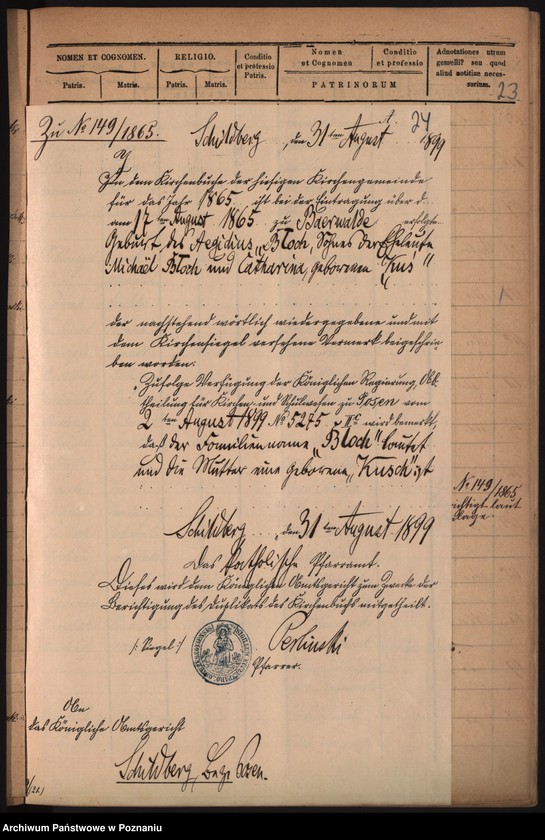 NOMEN ET COGNOMEN. RELIGIO. Conditio et professio Patris. Nomen et Cognomen Conditio et professio Adnotationes utrum gemelli? seu quod aliud notitiae necessarium.
Patris. Matris. Patris. Matris. PATRINORUM
23
Zu No 149/1865.
24
Schildberg, den 31ten August 1899
In dem Kirchenbuche der hiesigen Kirchengemeinde
für das Jahr 1865 ist bei der Eintragung über d..
am 17ten August 1865 zu Baerwalde erfolgte
Geburt des Aegidius "Bloch, Sohnes der Eheleute
Michael Bloch und Catharina, geborenen "Kus"
der nachstehend wörtlich wiedergegebene und mit
dem Kirchensiegel versehene Vermerk beigeschrie-
ben worden:
"Zufolge Verfügung der Königlichen Regierung, Ab-
theilung für Kirchen- und Schulwesen zu Posen vom
2ten August 1899 No 5275 IIc wird bemerkt,
daß der Familienname "Bloch" lautet
und die Mutter eine geborene "Kusch" ist
No 149/1865
richtigt laut
lage.
Schildberg, den 31ten August 1899
Das Katholische Pfarramt.
Dieses wird dem Königlichen Amtsgericht zum Zwecke der
Berichtigung des Duplikats des Kirchenbuchs mitgetheilt.
/: Siegel :/
Perlinski
Pfarrer.
An
das Königliche Amtsgericht
Schildberg, Bez. Posen.
Archiwum Państwowe w Poznaniu